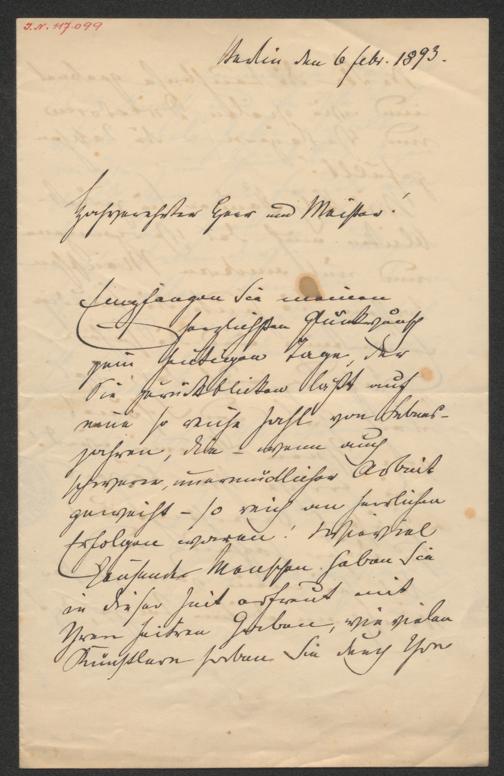 I.N. 117.099
Berlin den 6 Febr. 1893.
Hochverehrter Herr und Meister!
Empfangen Sie meinen
herzlichsten Glückwunsch
zum heutigen Tage, der
Sie zurückblicken läßt auf
eine so reiche Zahl von Lebens-
jahren, die – wenn auch
schwerer, unermüdlicher Arbeit
geweiht – so reich an herrlichen
Erfolgen waren! Wieviel
Tausende Menschen haben Sie
in dieser Zeit erfreut mit
Ihren heitren Gaben, wie vielen
Künstlern haben Sie durch Ihre